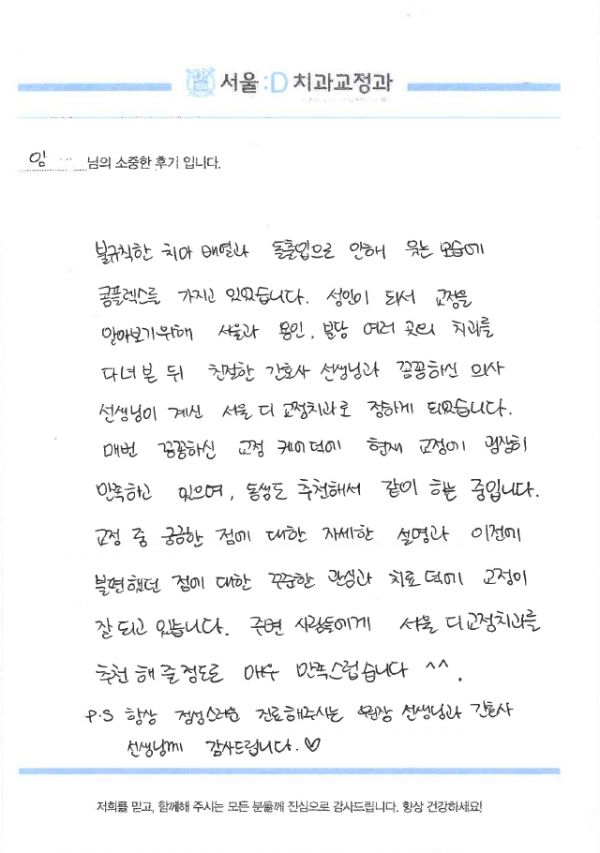 서울:D 치과교정과
임 님의 소중한 후기 입니다.
불규칙한 치아 배열과 돌출입으로 인해 웃는 모습에
콤플렉스를 가지고 있었습니다. 성인이 되서 교정을
알아보기위해 서울과 용인, 분당 여러 곳의 치과를
다녀본 뒤 친절한 간호사 선생님과 꼼꼼하신 의사
선생님이 계신 서울 디 교정치과로 정하게 되었습니다.
매번 꼼꼼하신 교정 케어덕에 현재 교정에 굉장히
만족하고 있으며, 동생도 추천해서 같이 하는 중입니다.
교정 중 궁금한 점에 대한 자세한 설명과 이전에
불편했던 점에 대한 꾸준한 관심과 치료덕에 교정이
잘 되고 있습니다. 주변 사람들에게 서울 디교정치과를
추천 해 줄 정도로 매우 만족스럽습니다 ^^.
P.S 항상 정성스러운 진료해주시는 원장 선생님과 간호사
선생님께 감사드립니다. ♡
저희를 믿고, 함께해 주시는 모든 분들께 진심으로 감사드립니다. 항상 건강하세요!